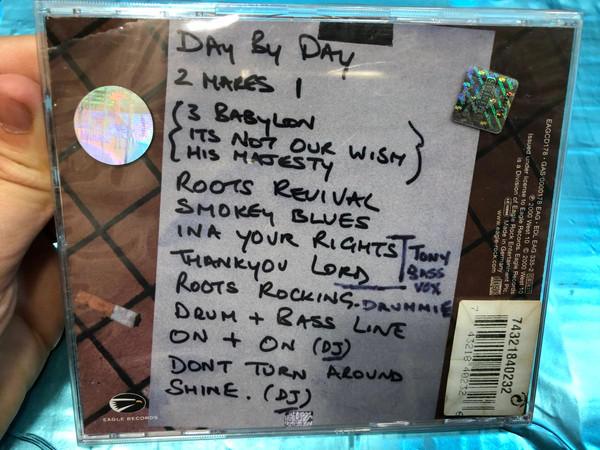 DAY BY DAY
2 MAKES 1
{3 BABYLON
ITS NOT OUR WISH
HIS MAJESTY}
ROOTS REVIVAL
SMOKEY BLUES
INA YOUR RIGHTS
THANKYOU LORD
TONY
BASS
VOX
ROOTS ROCKING. DRUMMIE
DRUM + BASS LINE
ON + ON (DJ)
DONT TURN AROUND
SHINE. (DJ)
EAGLE RECORDS
EAGCD178 - GAS 0000178 EAG - EDL EAG 330-2
℗ 2000 West 10 © 2000 West 10
Issued under license to Eagle Records. Eagle Records
is a Division of Eagle Rock Entertainment Plc
Made in Germany
www.eagle-rock.com
74321840232
7 43218 40232